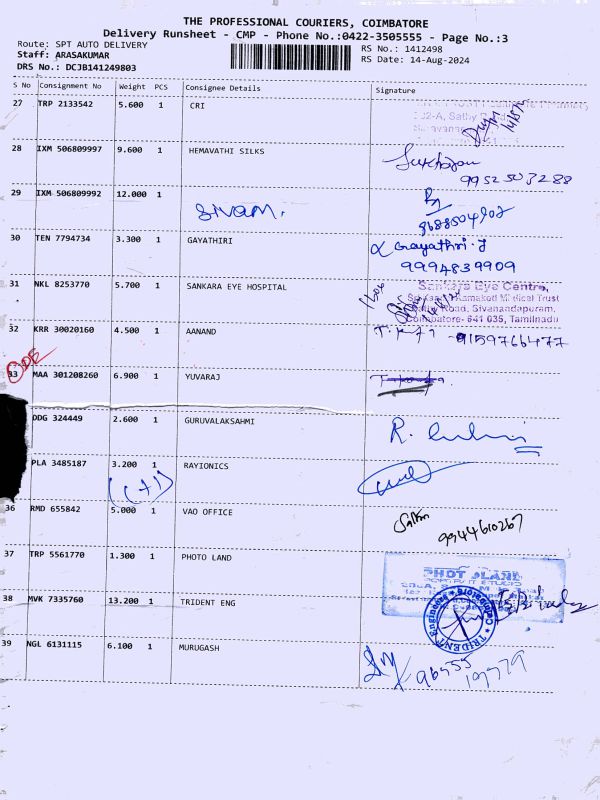 THE PROFESSIONAL COURIERS, COIMBATORE
Delivery Runsheet - CMP - Phone No.:0422-3505555 - Page No.:3
Route: SPT AUTO DELIVERY
RS No.: 1412498
Staff: ARASAKUMAR
RS Date: 14-Aug-2024
DRS No.: DCJB141249803
S No Consignment No Weight PCS Consignee Details Signature
27 TRP 2133542 5.600 1 CRI
28 IXM 506809997 9.600 1 HEMAVATHI SILKS
9952503288
29 IXM 506809992 12.000 1
Sivam.
30 TEN 7794734 3.300 1 GAYATHIRI Gayathri.J
9994839909
31 NKL 8253770 5.700 1 SANKARA EYE HOSPITAL Sankara Eye Centre,
Sri Kanchi Kamakoti Medical Trust
Sathy Road, Sivanandapuram,
Coimbatore- 641 035, Tamilnadu
32 KRR 30020160 4.500 1 AANAND 9159766477
ODE
33 MAA 301208260 6.900 1 YUVARAJ
DDG 324449 2.600 1 GURUVALAKSAHMI R.
PLA 3485187 3.200 1 RAYIONICS
(C+1)
36 RMD 655842 5.000 1 VAO OFFICE
9944610267
37 TRP 5561770 1.300 1 PHOTO LAND
PHOTO LAND
38 MVK 7335760 13.200 1 TRIDENT ENG
TRIDENT Engineers Coimbatore
39 NGL 6131115 6.100 1 MURUGASH
96555
197779